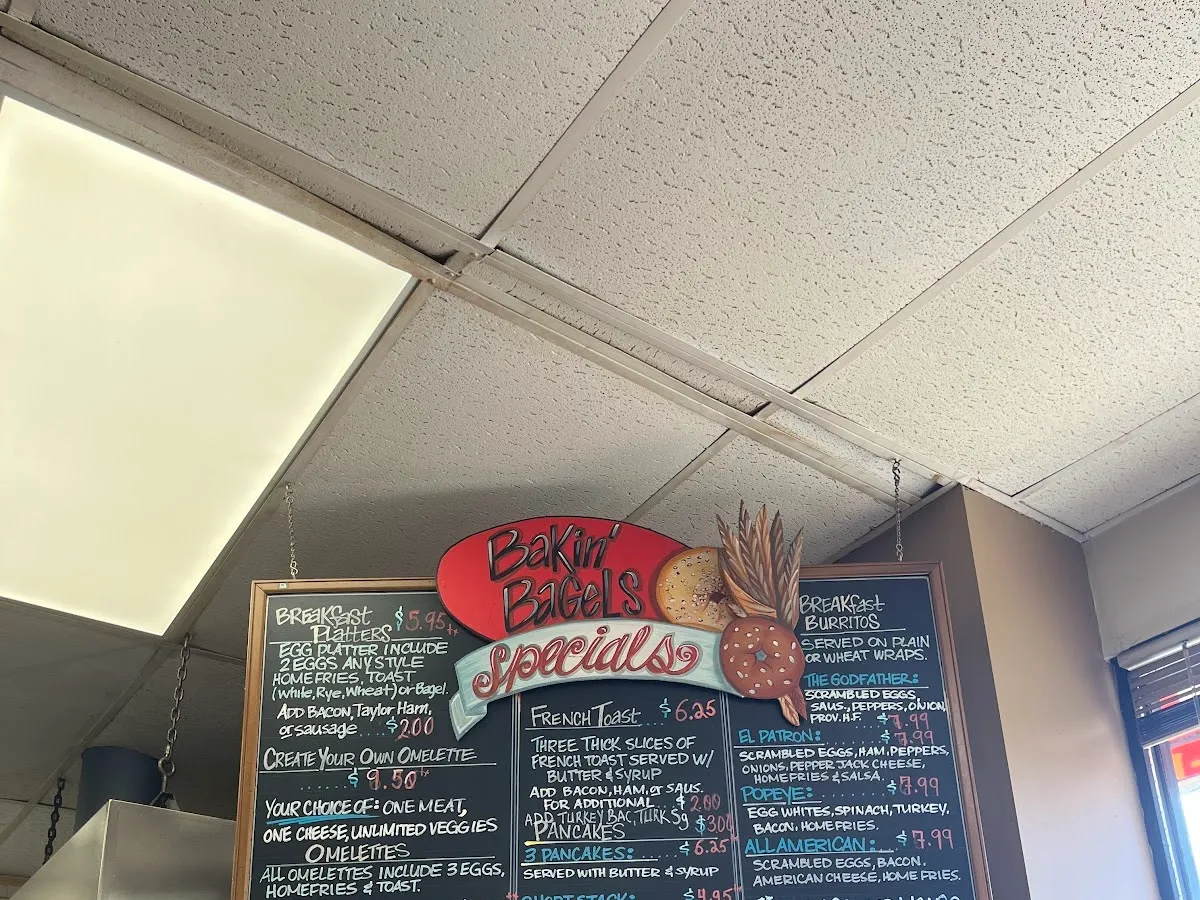 BAKIN'
BAGELS
Specials
BREAKFAST
PLATTERS $5.95++
EGG PLATTER INCLUDE
2 EGGS ANY STYLE
HOMEFRIES, TOAST
(White, Rye, Wheat) or Bagel.
ADD BACON, Taylor Ham,
or sausage....$2.00
CREATE YOUR OWN OMELETTE
......$9.50++
YOUR CHOICE OF: ONE MEAT,
ONE CHEESE, UNLIMITED VEGGIES
OMELETTES
ALL OMELETTES INCLUDE 3 EGGS,
HOMEFRIES & TOAST.
FRENCH TOAST..$6.25
THREE THICK SLICES OF
FRENCH TOAST SERVED W/
BUTTER & SYRUP
ADD BACON, HAM, or SAUS.
FOR ADDITIONAL..$2.00
ADD TURKEY BAC, TURK Sg $3.00
PANCAKES
3 PANCAKES:......$6.25
SERVED WITH BUTTER & SYRUP
SHORT STACK:......$4.95
BREAKFAST
BURRITOS
SERVED ON PLAIN
OR WHEAT WRAPS.
THE GODFATHER:
SCRAMBLED EGGS,
SAUS., PEPPERS, ONION,
PROV. H.F. $7.99
EL PATRON:......$7.99
SCRAMBLED EGGS, HAM, PEPPERS,
ONIONS, PEPPER JACK CHEESE,
HOMEFRIES & SALSA.
POPEYE:......$7.99
EGG WHITES, SPINACH, TURKEY,
BACON, HOMEFRIES.
ALL AMERICAN:...$7.99
SCRAMBLED EGGS, BACON.
AMERICAN CHEESE, HOME FRIES.